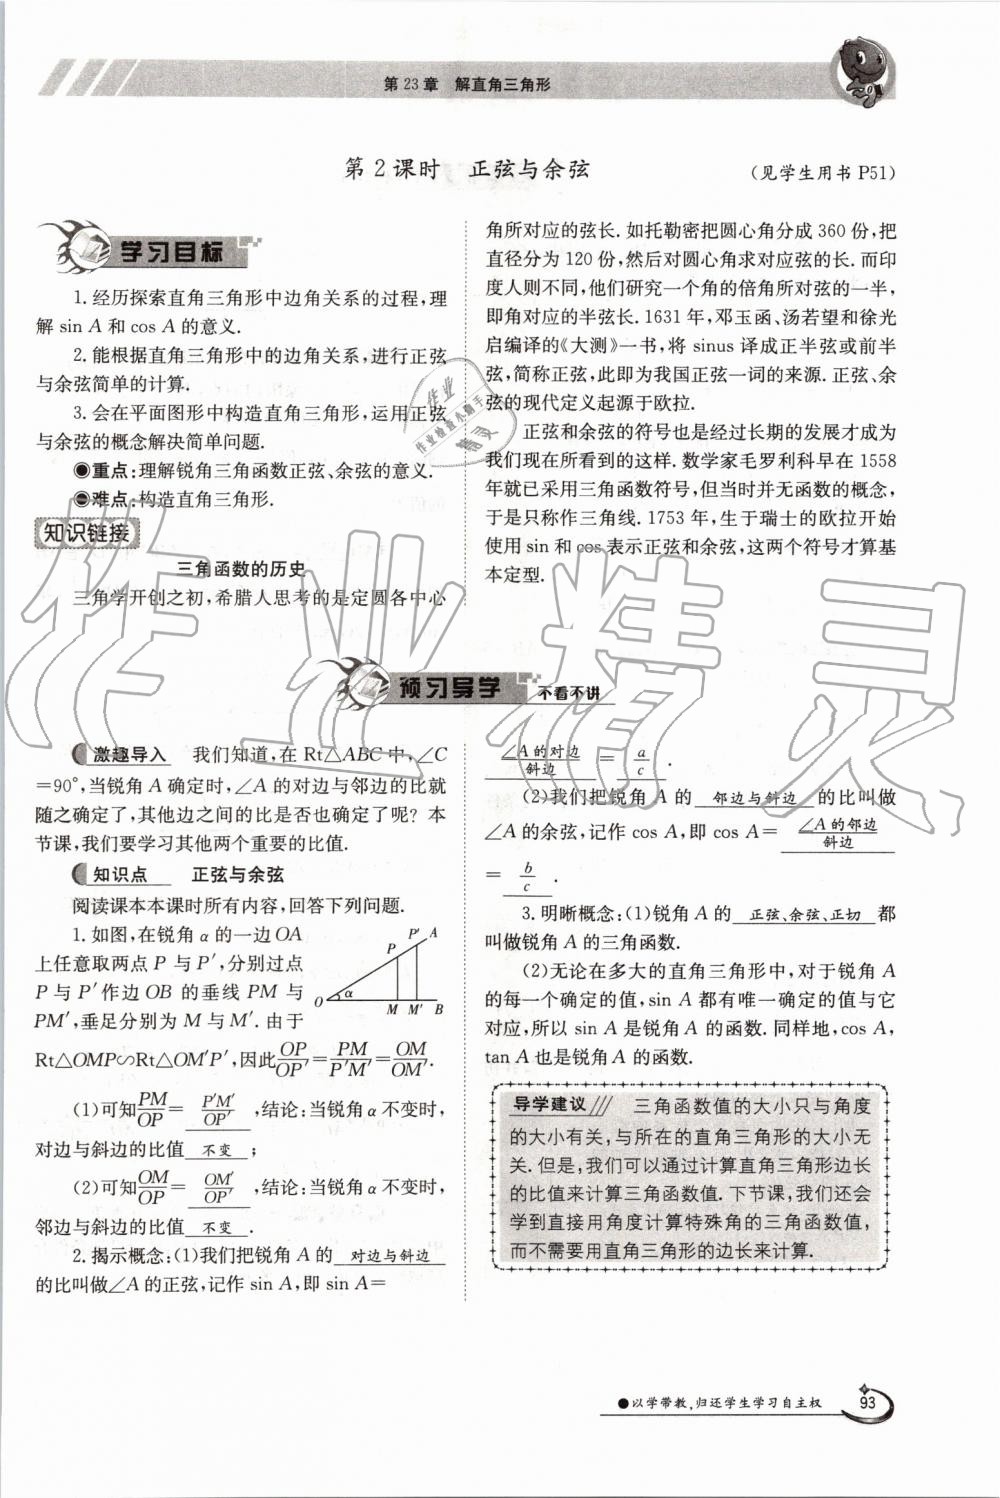 第23章 解直角三角形
第2课时 正弦与余弦
(见学生用书 P51)
学习目标
1. 经历探索直角三角形中边角关系的过程,理
解 sin A 和 cos A 的意义.
2. 能根据直角三角形中的边角关系,进行正弦
与余弦简单的计算.
3. 会在平面图形中构造直角三角形,运用正弦
与余弦的概念解决简单问题.
◉重点:理解锐角三角函数正弦、余弦的意义.
◉难点:构造直角三角形.
知识链接
三角函数的历史
三角学开创之初,希腊人思考的是定圆各中心
角所对应的弦长. 如托勒密把圆心角分成 360 份,把
直径分为 120 份,然后对圆心角求对应弦的长. 而印
度人则不同,他们研究一个角的倍角所对弦的一半,
即角对应的半弦长. 1631 年,邓玉函、汤若望和徐光
启编译的《大测》一书,将 sinus 译成正半弦或前半
弦,简称正弦,此即为我国正弦一词的来源. 正弦、余
弦的现代定义起源于欧拉.
正弦和余弦的符号也是经过长期的发展才成为
我们现在所看到的这样. 数学家毛罗利科早在 1558
年就已采用三角函数符号,但当时并无函数的概念,
于是只称作三角线. 1753 年,生于瑞士的欧拉开始
使用 sin 和 cos 表示正弦和余弦,这两个符号才算基
本定型.
预习导学 不看不讲
激趣导入 我们知道,在 Rt△ABC 中,∠C
=90°,当锐角 A 确定时,∠A 的对边与邻边的比就
随之确定了,其他边之间的比是否也确定了呢? 本
节课,我们要学习其他两个重要的比值.
知识点 正弦与余弦
阅读课本本课时所有内容,回答下列问题.
1. 如图,在锐角 α 的一边 OA
上任意取两点 P 与 P′,分别过点
P 与 P′作边 OB 的垂线 PM 与
P′M′,垂足分别为 M 与 M′. 由于
Rt△OMP∽Rt△OM′P′,因此OP/OP′=PM/P′M′=OM/OM′.
P P′ A
O α M M′ B
(1)可知PM/OP= P′M′/OP′ ,结论:当锐角 α 不变时,
对边与斜边的比值 不变 ;
(2)可知OM/OP= OM′/OP′ ,结论:当锐角 α 不变时,
邻边与斜边的比值 不变 .
2. 揭示概念:(1)我们把锐角 A 的 对边与斜边
的比叫做∠A 的正弦,记作 sin A,即 sin A=
∠A的对边/斜边 = a/c .
(2)我们把锐角 A 的 邻边与斜边 的比叫做
∠A 的余弦,记作 cos A,即 cos A= ∠A的邻边/斜边
= b/c .
3. 明晰概念:(1)锐角 A 的 正弦、余弦、正切 都
叫做锐角 A 的三角函数.
(2)无论在多大的直角三角形中,对于锐角 A
的每一个确定的值,sin A 都有唯一确定的值与它
对应,所以 sin A 是锐角 A 的函数. 同样地,cos A,
tan A 也是锐角 A 的函数.
导学建议 三角函数值的大小只与角度
的大小有关,与所在的直角三角形的大小无
关. 但是,我们可以通过计算直角三角形边长
的比值来计算三角函数值. 下节课,我们还会
学到直接用角度计算特殊角的三角函数值,
而不需要用直角三角形的边长来计算.
作业精灵
作业
作业检查小帮手
精灵
●以学带教,归还学生学习自主权
93